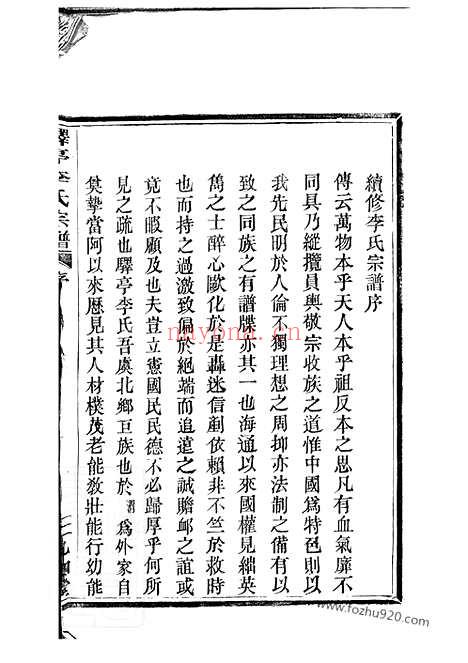 續修李氏宗譜序
傳云萬物本乎天人本乎祖反本之思凡有血氣靡不
同具乃縱攬員輿敬宗收族之道惟中國為特色則以
我先民明於人倫不獨理想之周抑亦法制之備有以
致之同族之有譜牒亦其一也海通以來國權見絀英
雋之士醉心歐化於是轟迷信剷依賴非不竺於救時
也而持之過激致偏於絕端而追遠之誠贍卹之誼或
竟不暇顧及也夫豈立憲國民民德不必歸厚乎何所
見之疏也驛亭李氏吾虞北鄉巨族也於
為外家自
奘摯當阿以來歷見其人材樸茂老能敎壯能行幼能
驛亭李氏宗譜
序
nayona.cn
www.fozhu920.com